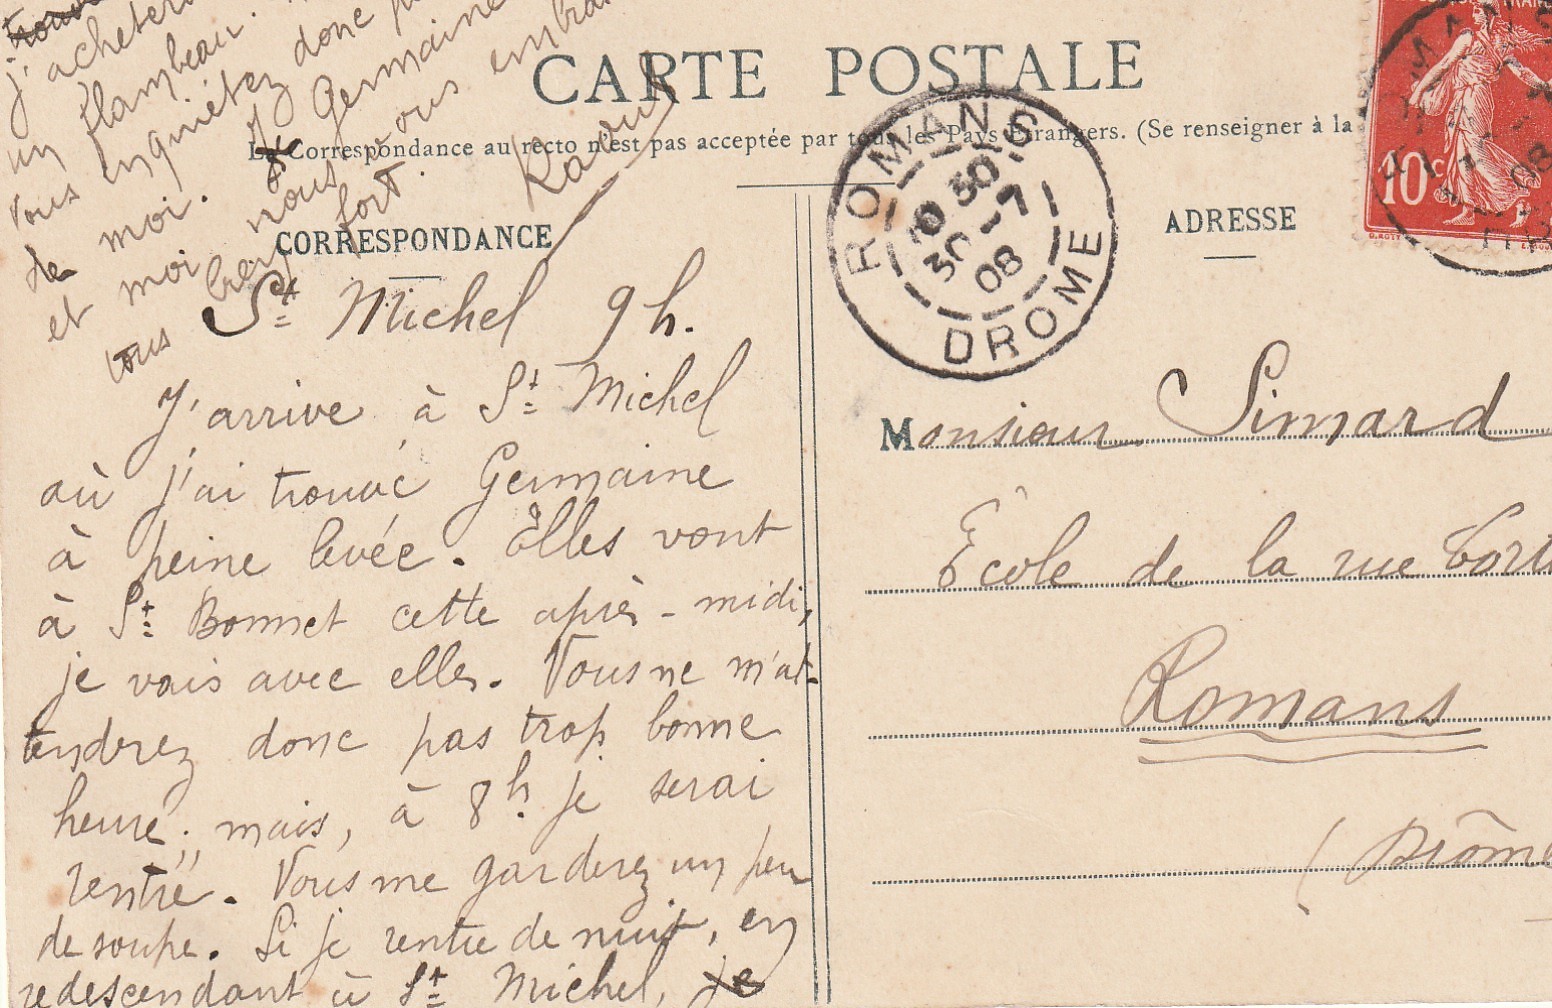 CARTE POSTALE
La Correspondance au recto n'est pas acceptée par tous les Pays Étrangers. (Se renseigner à la
CORRESPONDANCE
ADRESSE
ROMANS
10 30
30 - 7
08
DROME
10c
St Michel 9h.
J'arrive à St Michel
où j'ai trouvé Germaine
à peine levée. Elles vont
à St Bonnet cette après-midi,
je vais avec elles. Vous ne m'at-
tenderez donc pas trop bonne
heure ; mais, à 8h. je serai
rentré. Vous me garderez un peu
de soupe. Si je rentre de nuit, en
redescendant à St Michel, je
j'achèterai
un flambeau.
Vous inquiétez donc
de moi. Germaine
et moi nous vous
tous bien fort.
Raoul
Monsieur Simard
École de la rue
Romans
(Drôme